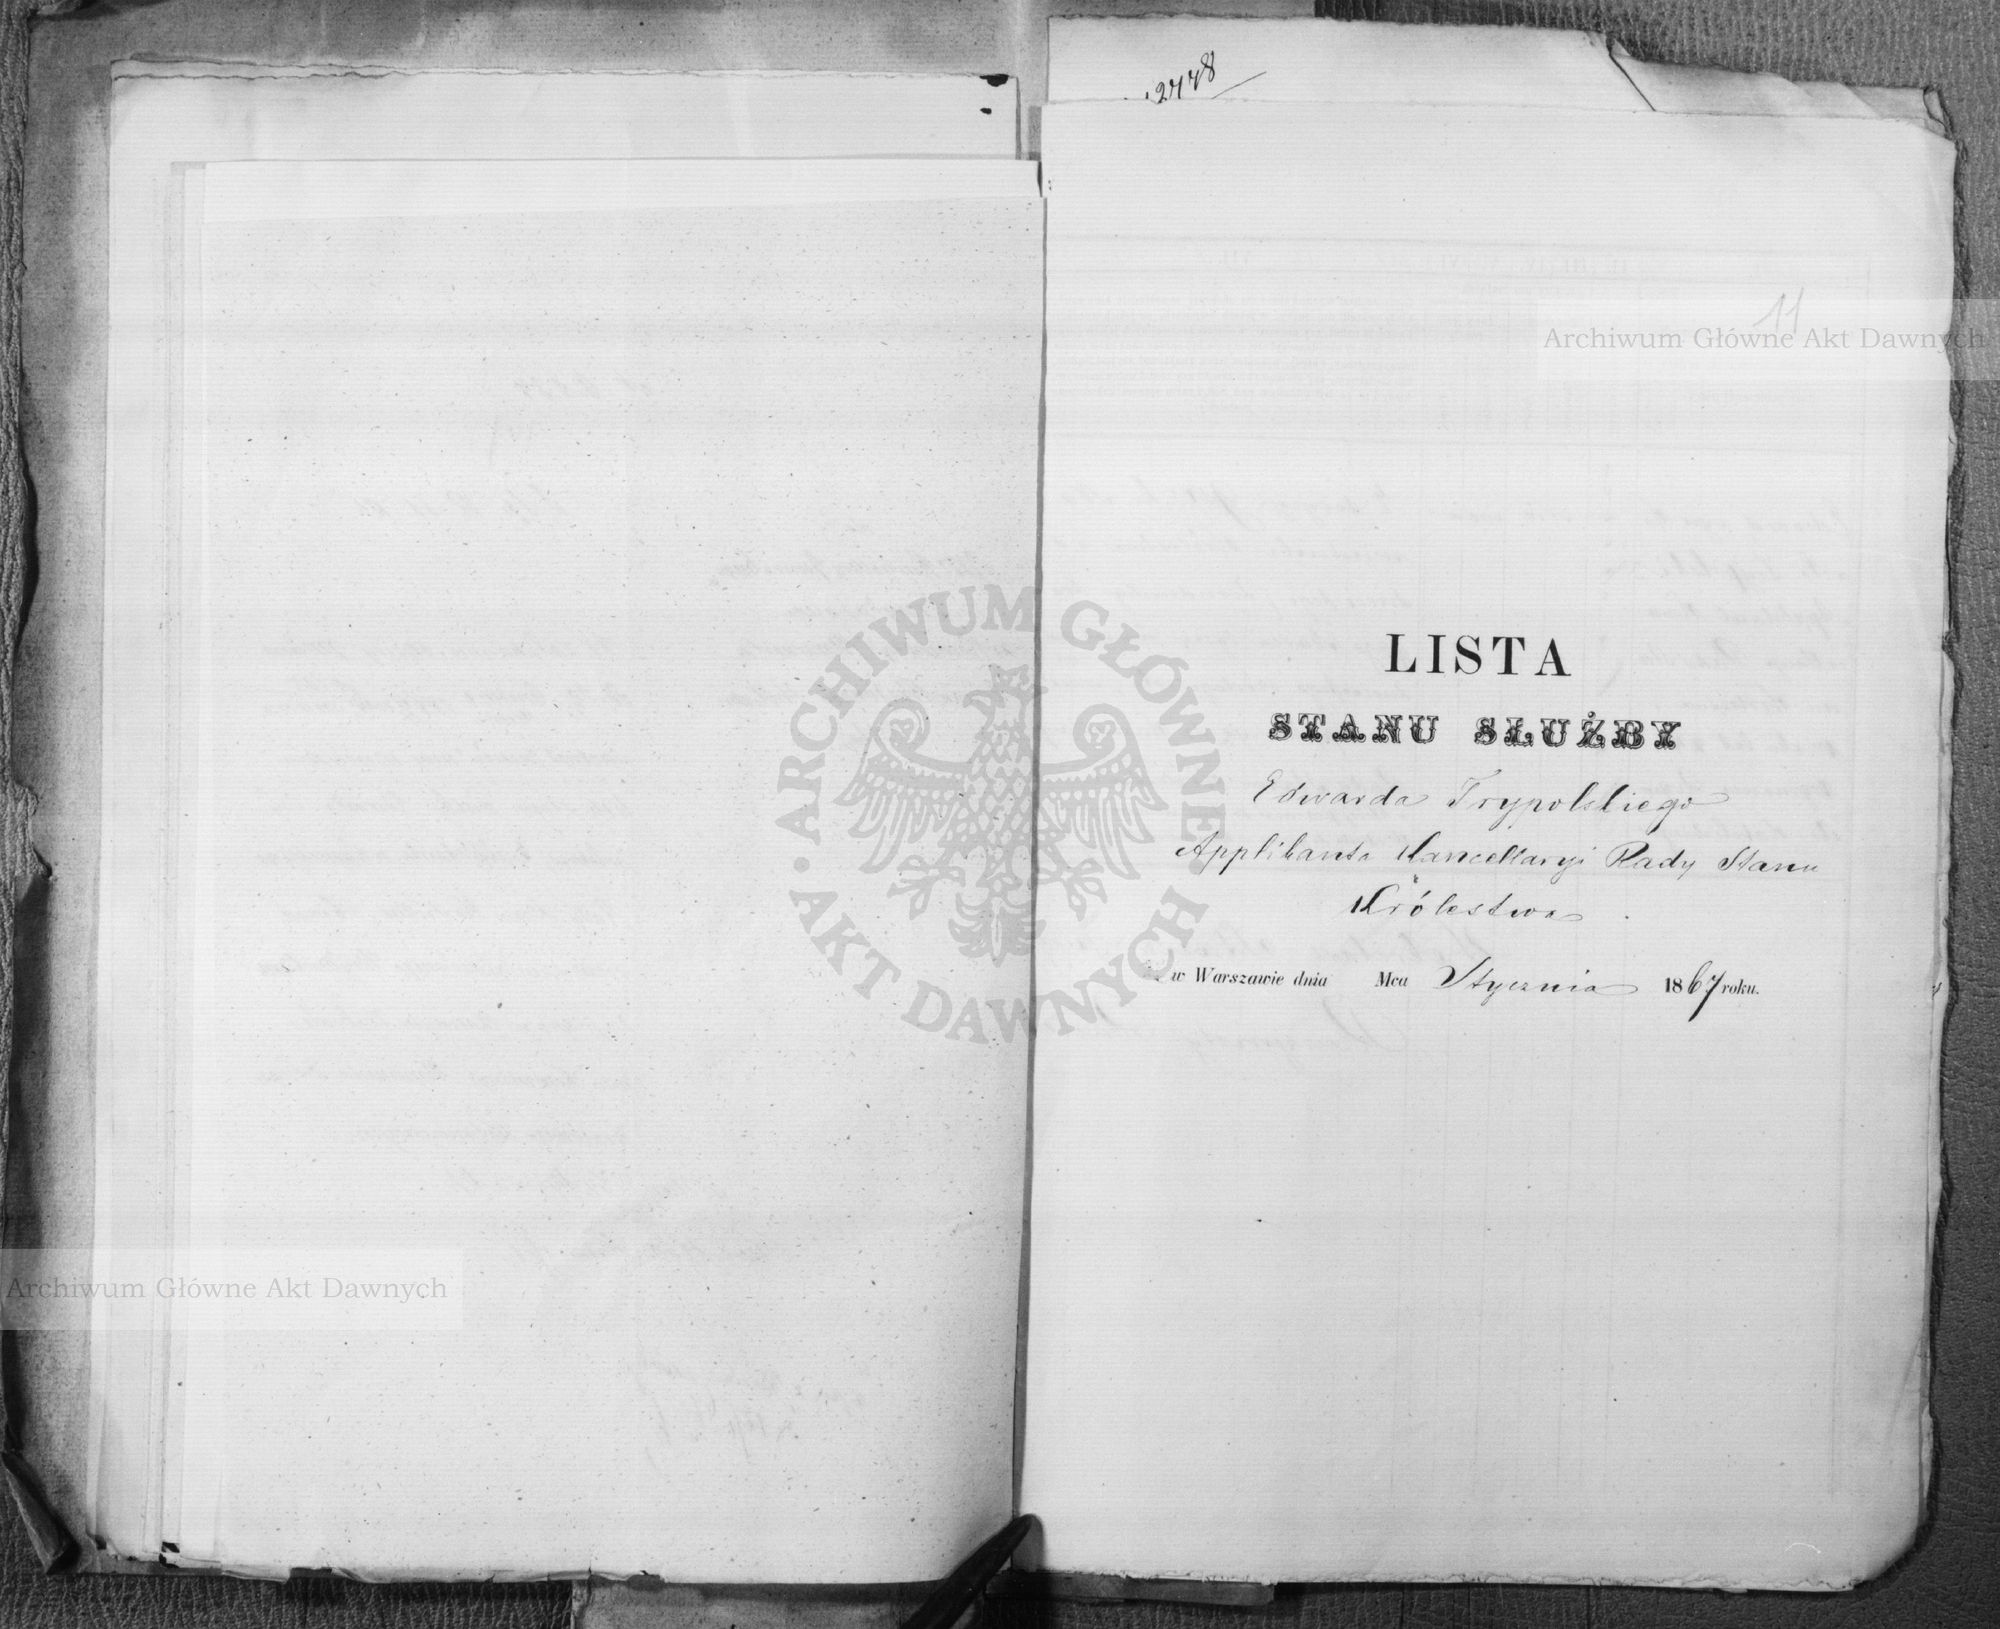 2778
11
Archiwum Główne Akt Dawnych
LISTA
STANU SŁUŻBY
Edwarda Trypolskiego
Applikanta Kancellaryi Rady Stanu
Królestwa
w Warszawie dnia Mca Stycznia 1867 roku.
ARCHIWUM GŁÓWNE
AKT DAWNYCH
Archiwum Główne Akt Dawnych